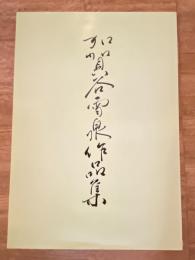 加賀谷雪泉作品集